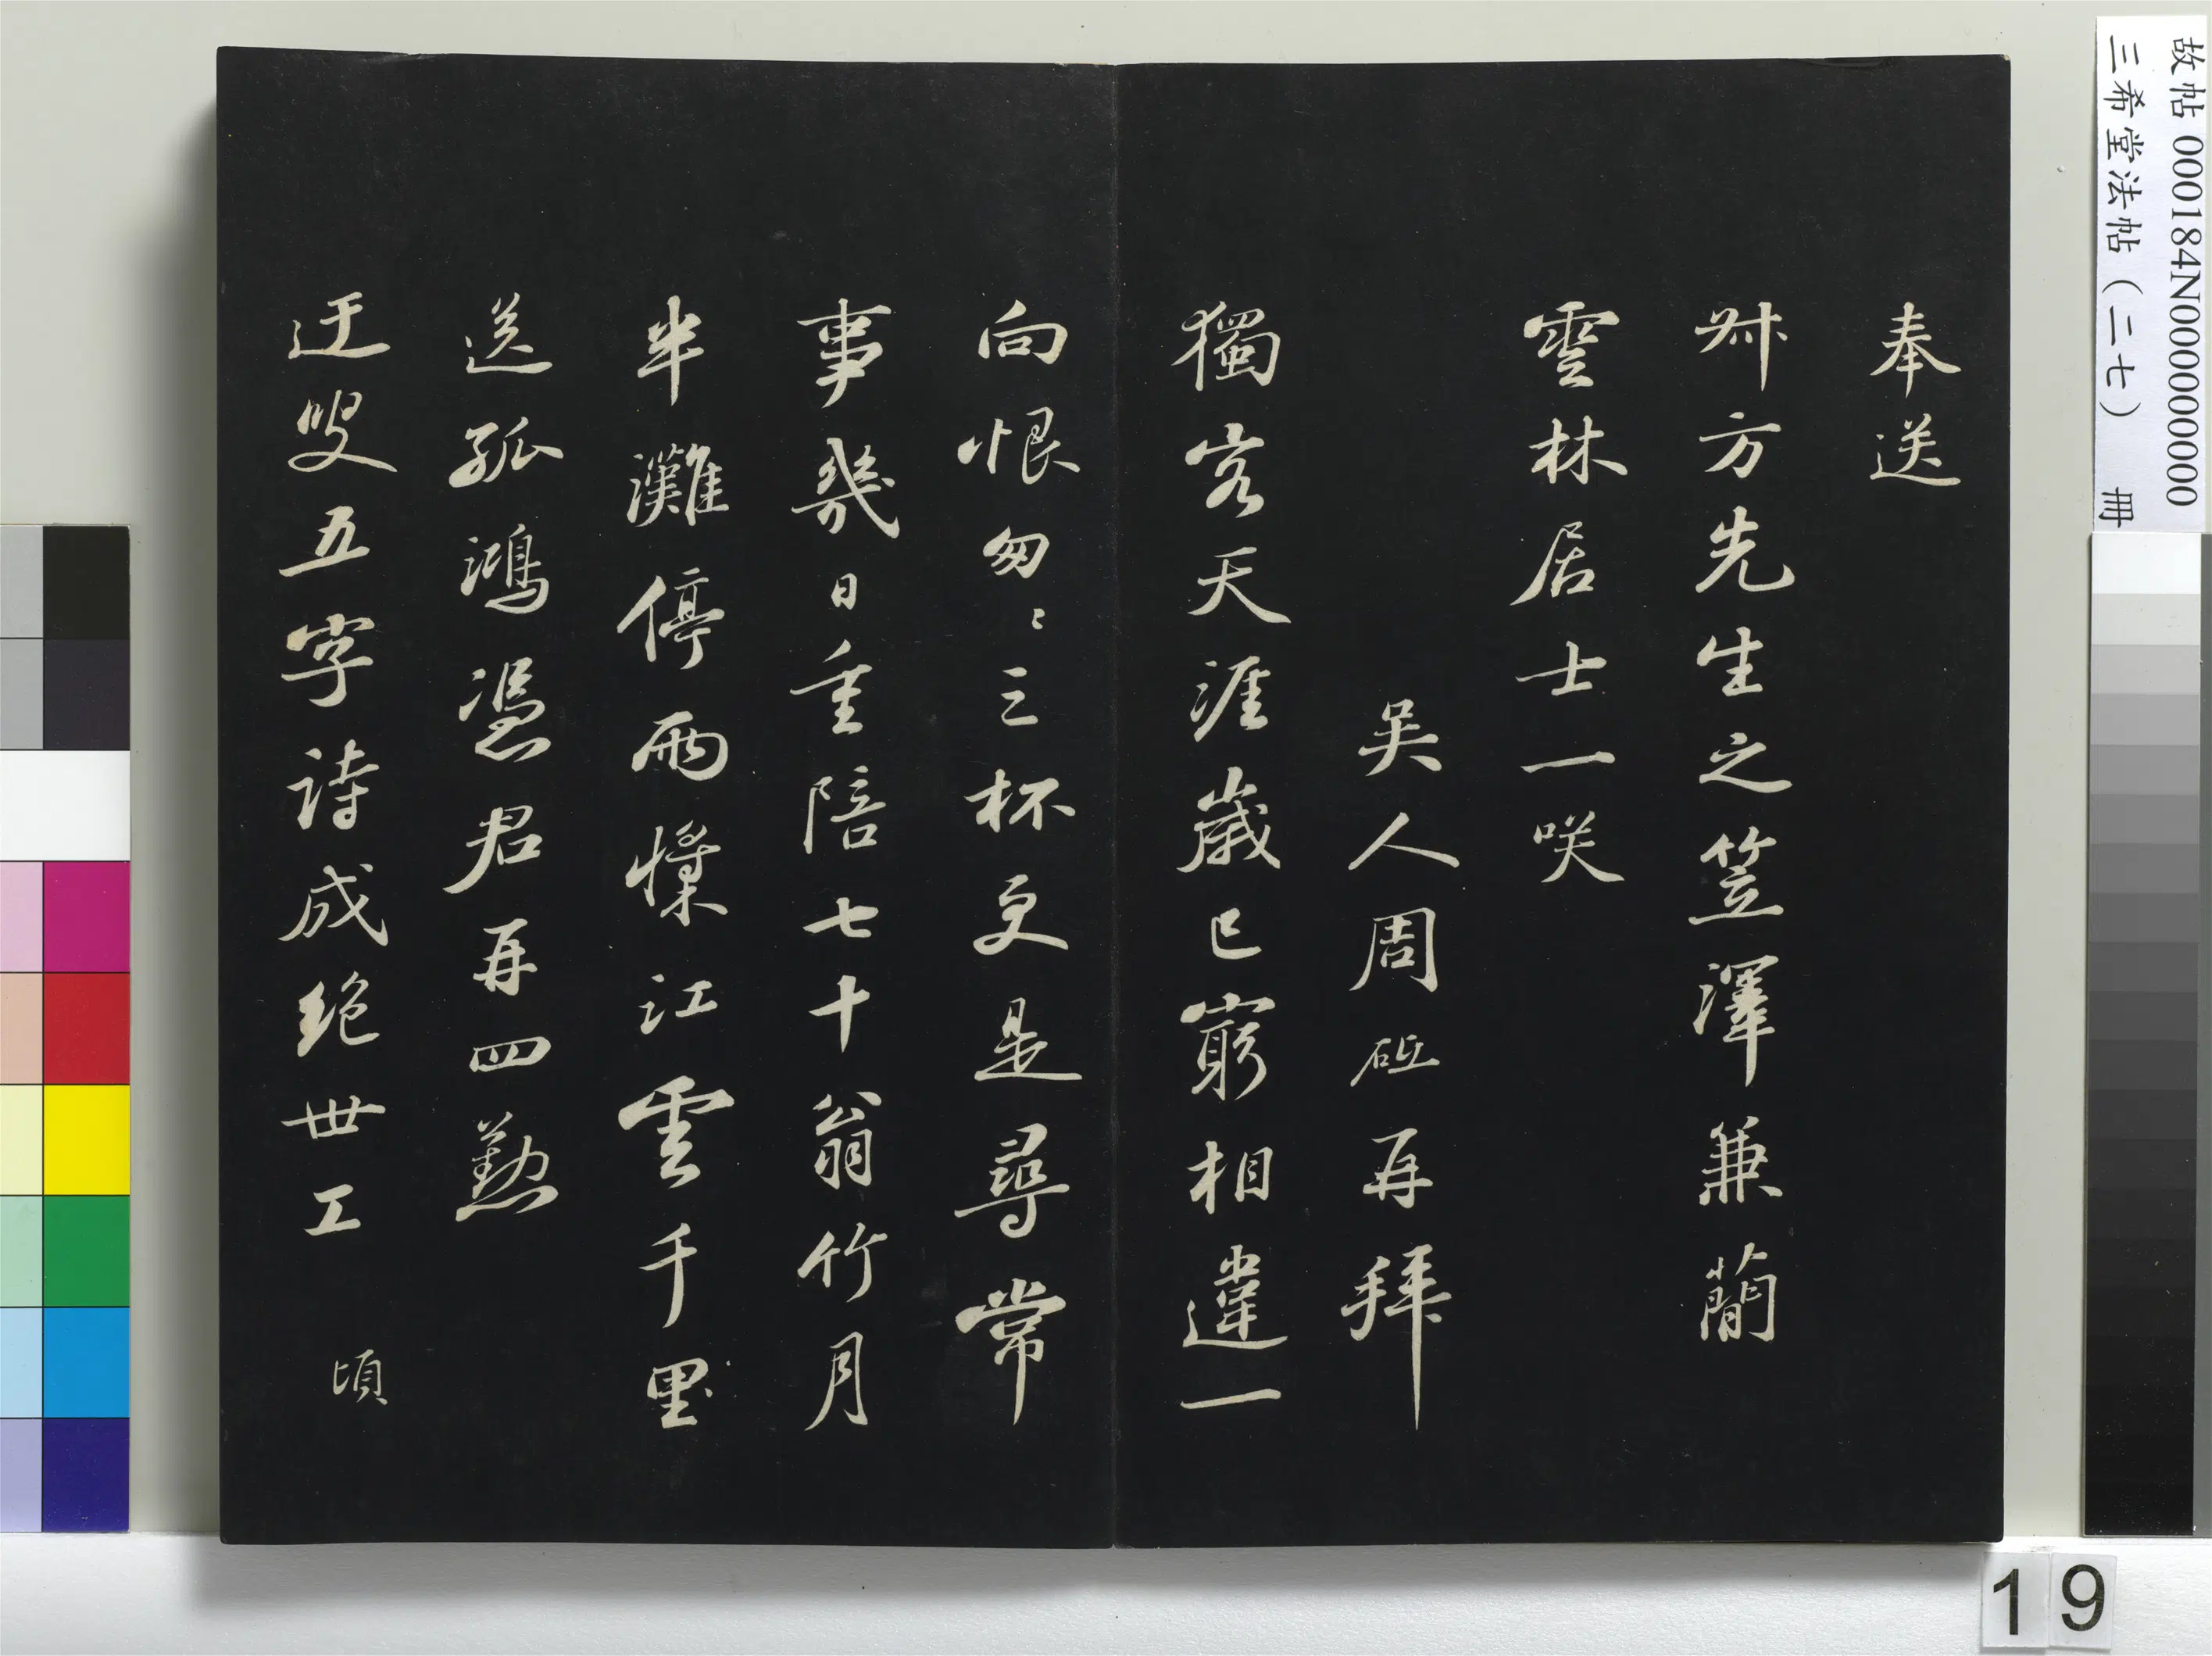 奉送
叔方先生之笠澤兼蕳
雲林居士一咲
吴人周砥再拜
獨客天涯歲已窮相違一
向恨匆〻三杯更是尋常
事幾日重陪七十翁竹月
半灘停雨㦬江雲千里
送孤鴻憑君再四懃
迂叟五字詩成絶世工
頃
故帖 000184N000000000
三希堂法帖（二七） 冊
19